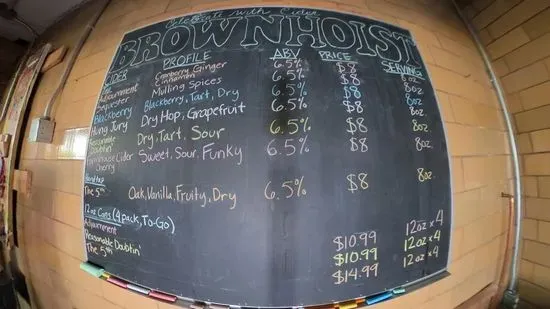 Celebrate with Cider
BROWNHOIST
CIDER PROFILE ABV PRICE SERVING
The Adjournment Cranberry Ginger Cinnamon 6.5% $8 8oz
Sequester Mulling Spices 6.5% $8 8oz
Blackberry Blackberry, Tart, Dry 6.5% $8 8oz
Hung Jury Dry Hop, Grapefruit 6.5% $8 8oz
Reasonable Doubtin' Dry, Tart, Sour 6.5% $8 8oz
Farmhouse Cider Cherry Sweet, Sour, Funky 6.5% $8 8oz
The 5th Oak, Vanilla, Fruity, Dry 6.5% $8 8oz
12oz Cans (4 pack, To-Go)
Adjournment $10.99 12oz x 4
Reasonable Doubtin' $10.99 12oz x 4
The 5th $14.99 12oz x 4